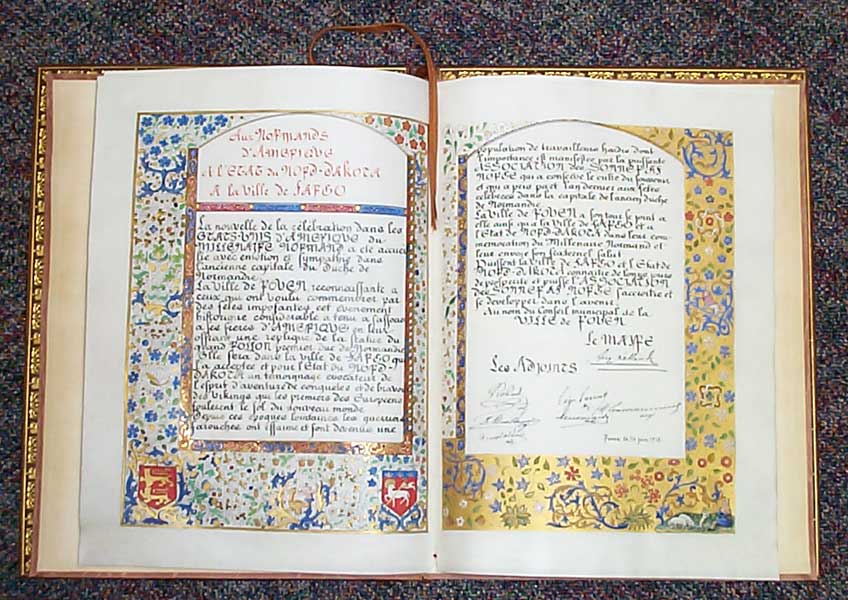 Aux NORMANDS
D'AMERIQUE
A L'ETAT du NORD-DAKOTA
A la Ville de FARGO
La nouvelle de la célébration dans les
ETATS-UNIS D'AMERIQUE du
MILLENAIRE NORMAND a été accueil
lie avec émotion et sympathie dans
l'ancienne capitale du Duché de
Normandie.
La Ville de ROUEN reconnaissante à
ceux qui ont voulu commémorer par
des fêtes imposantes, cet événement
historique considérable a tenu à s'associer
à ses frères d'AMERIQUE en leur
offrant une réplique de la statue du
grand ROLLON premier duc de Normandie.
Elle sera dans la ville de FARGO qui
l'a acceptée et pour l'Etat du NORD-
DAKOTA un témoignage évocateur de
l'esprit d'aventure de conquêtes et de bravoure
des Vikings qui les premiers des Européens
foulèrent le sol du nouveau monde.
Depuis ces époques lointaines les guerriers
farouches ont essaimé et sont devenus une
population de travailleurs hardis dont
l'importance est manifestée par la puissante
ASSOCIATION des SONNERS AF
NORGE qui a conservé le culte du souvenir
et qui a pris part l'an dernier aux fêtes
célébrées dans la capitale de l'ancien duché
de Normandie.
La Ville de ROUEN a son tour se joint à
elle ainsi qu'à la Ville de FARGO et à
l'Etat de NORD-DAKOTA dans leur com
mémoration du Millénaire Normand et
leur envoie son fraternel salut.
Puissent la Ville de FARGO et l'Etat de
NORD-DAKOTA connaître de longs jours
de prospérité et puisse l'ASSOCIATION
des SONNERS AF NORGE s'accroître et
se développer dans l'avenir.
Au nom du Conseil municipal de la
VILLE de ROUEN
Le MAIRE
Les ADJOINTS